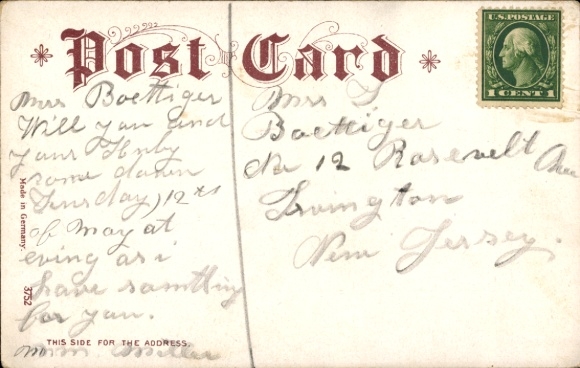 Post Card
U.S. POSTAGE
1 CENT 1
Mrs Boettiger
Will you and
your Huby
come down
Tuesday, 12 th
of May at
eving as i
have somthing
for you.
Mrs Miller
Mrs F
Boettiger
No 12 Rosevelt Ave
Irvington
New Jersey.
Made in Germany.
3752
THIS SIDE FOR THE ADDRESS.